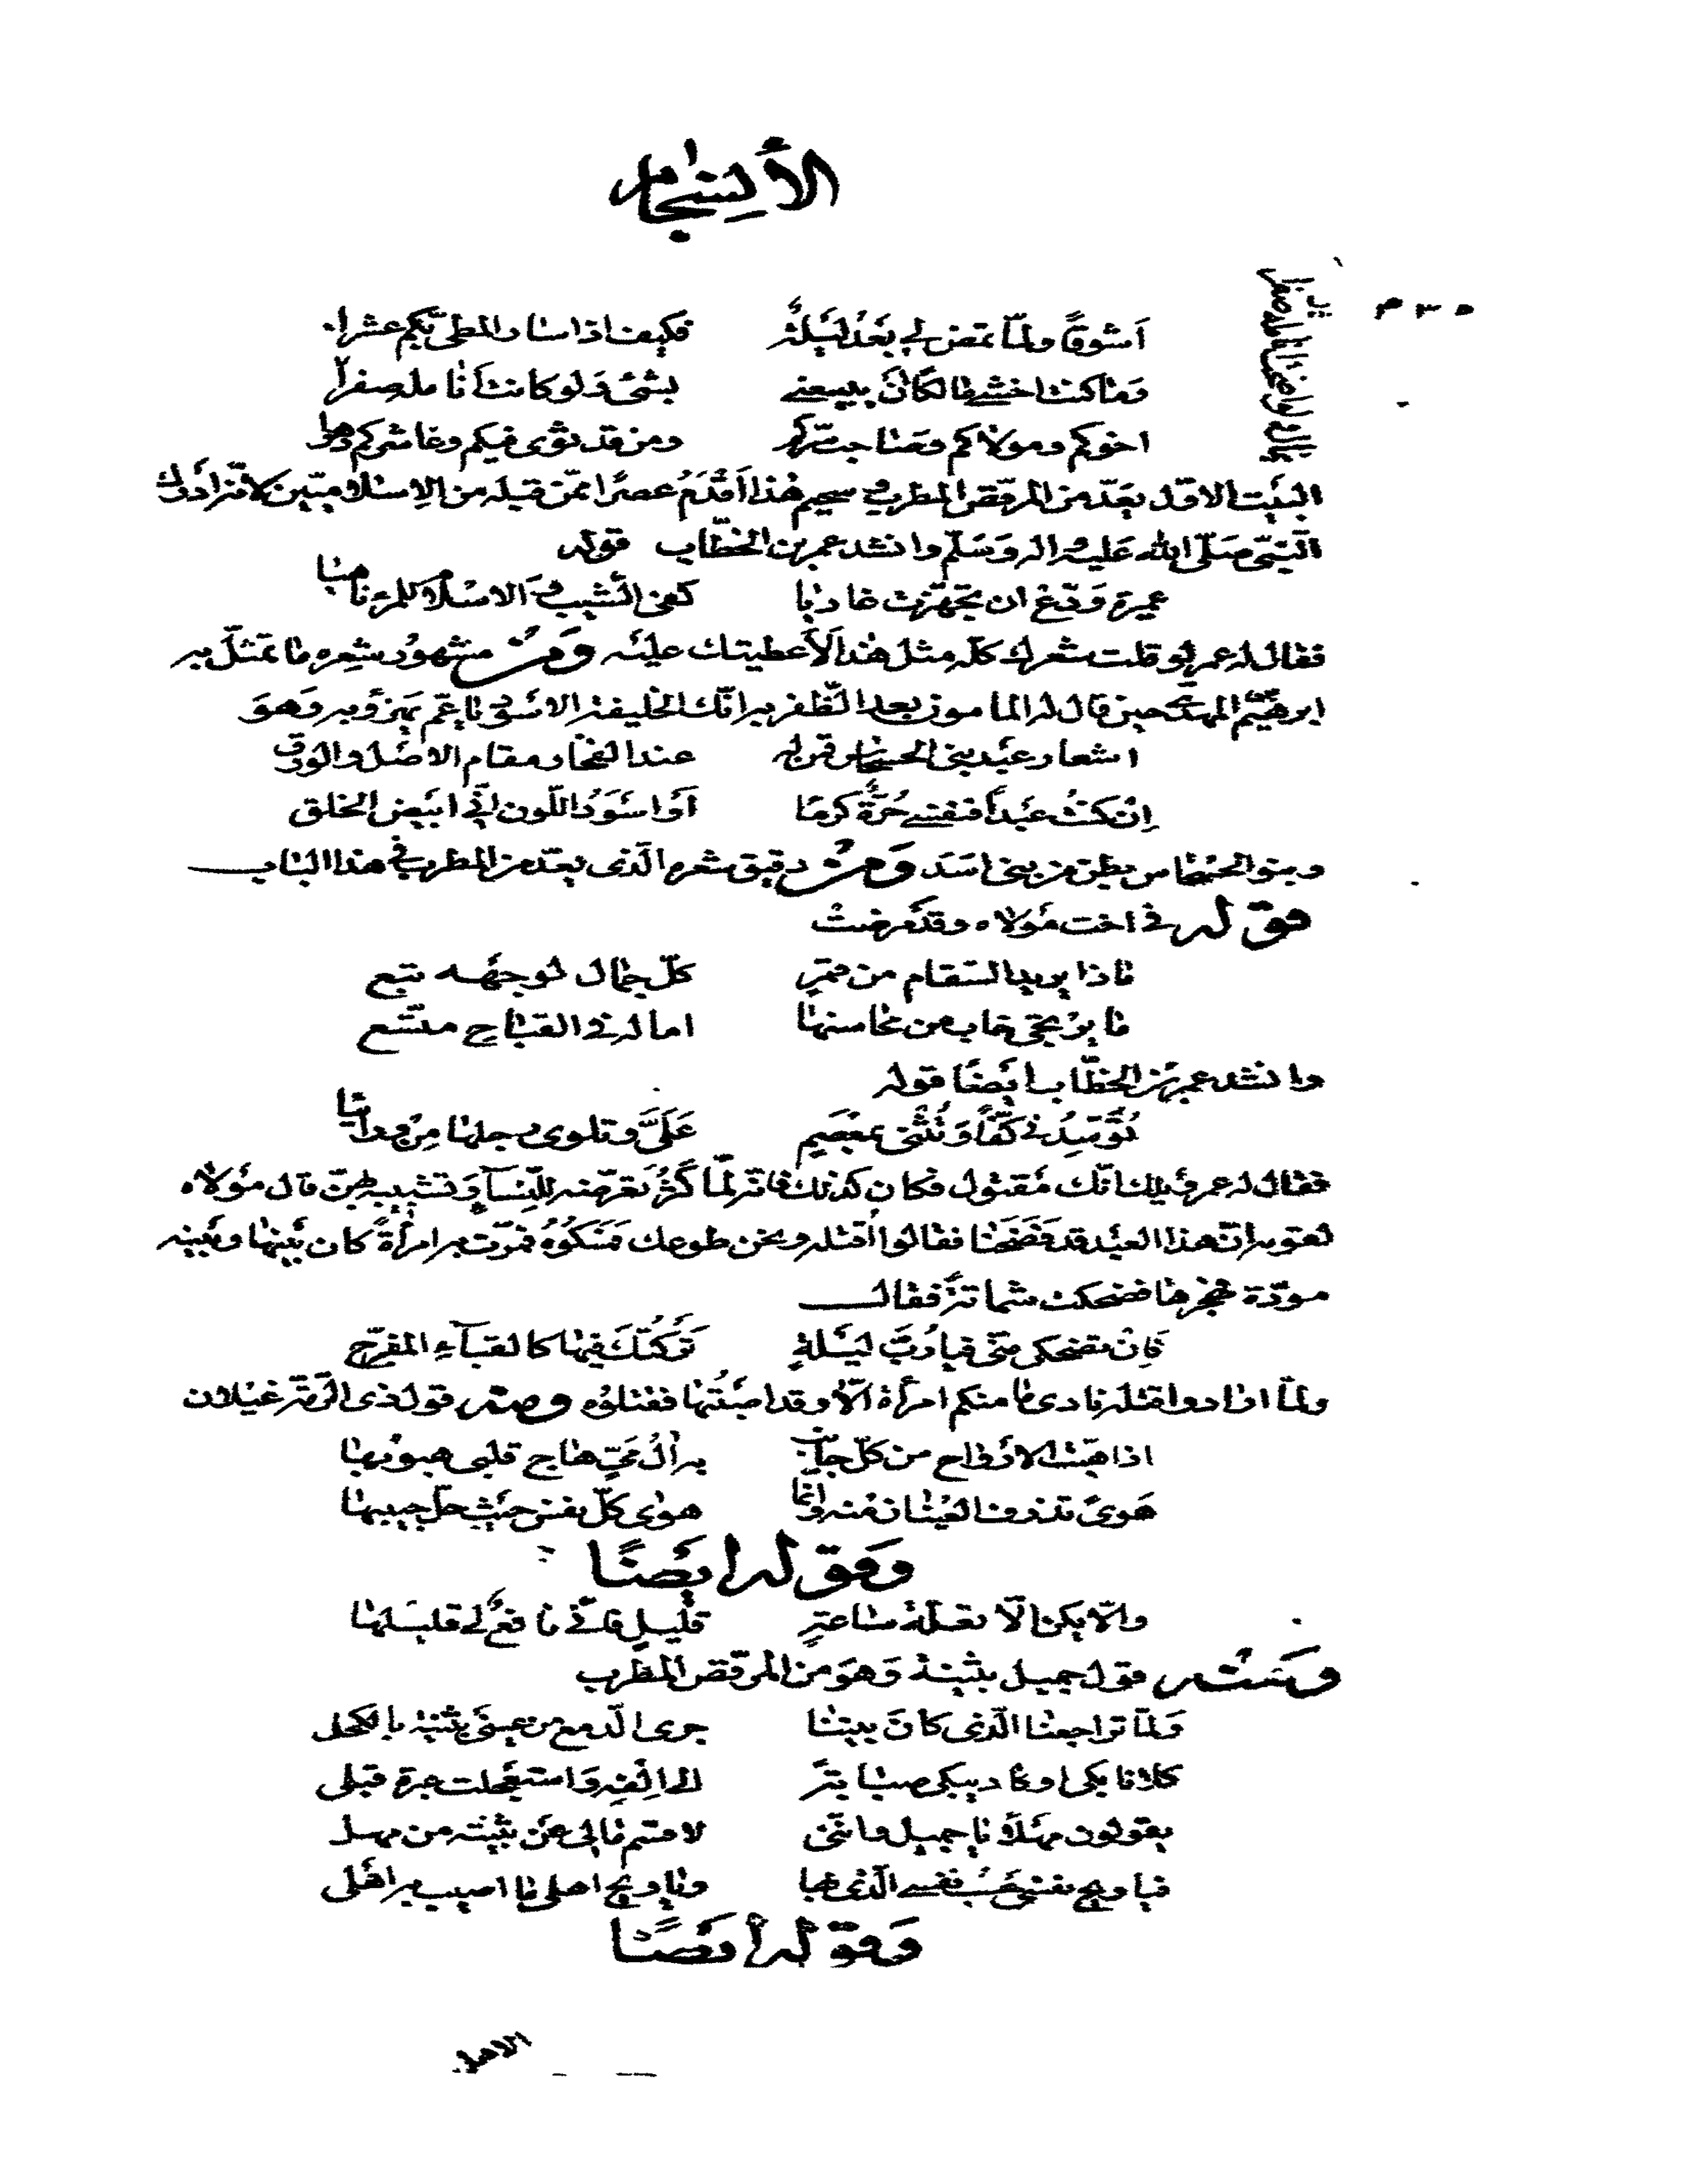 الأنسجام
أشوقًا ولمّا تمض لي بعدُ ليلةٌ فكيف اذا سار المطىّ بكم عشرا
وما كنت اخشى مالكًا ان يبيعنى بشئ ولو كانت أنامله صفرا
اخوكم ومولاكم وصاحب سرّكم ومن قد ثوى فيكم وعاشركم دهرا
البيت الاوّل يعدّ من المرقص المطرب و سحيم هذا أقدَمُ عصرًا ممّن قبله من الإسلاميّين لانّه أدرك
النّبىّ صَلّى الله عَليه واله وَسَلّم وانشد عمر بن الخطّاب قوله
عميرة وَدّع ان تجهّزت غاديا كفى الشيب وَالاسلام للمرء ناهيا
فقال له عمر لو قلت شعرك كلّه مثل هذا لأعطيتك عليه وَمن مشهور شعره ما تمثّل به
ابرهيم المهدى حين قال له المامون بعد الظّفر به انّك الخليفة الاسود يا عمّ يهزؤ به وَهوَ
اشعار عبد بنى الحسحاس قمن له عند الفخار مقام الاصل والورق
إن كنتُ عبداً فنفسى حُرّةٌ كرمًا أو اسوَدُ اللّون إنّى ابيض الخلق
وبنو الحسحاس بطن من بنى اسَد وَمن دقيق شعره الّذى يعدّ من المطرب فى هذا الباب
قوله فى اخت مولاه وقد مرضت
ماذا يريد السقام من قمرٍ كلّ جمال لوجهه تبع
ما يرتجى خاب من محاسنها اما له فى القباح متّسع
وانشد عمر بن الخطّاب ايضًا قوله
تُوَسِّدُنى كَفًّا وَتُثنى بمعصَمٍ عَلَىَّ وتلوى رجلها مِن ورائيا
فقال له عمر ويلك انّك مَقتول فكان كذلك فانّه لمّا كَثُرَ تعرّضه للنّسآء وَتشبيبه بهنّ قال مولاه
لقومه انّ هذا العبد قد فَضَحَنا فقالوا اقتله ونحن طوعك فَمَسَكوُهُ فمرّت به امرأةً كان بَينها وبَينه
مودّة فهجرها فضحكت شماتةً فقال
فإن تضحكى منّى فيا رُبّ ليلةٍ تَرَكتُكَ فيها كالقبآء المفرّج
ولمّا ارادوا قتله نادى ما منكم امرأة الّا وقد اصَبتُها فقتلوُه ومنه قول ذى الرّمّة غيلان
اذا هبّت الارواح من كلّ جانب به آلُ مىٍّ هاج قلبى هبوبها
هَوىً تذرف العينان منه وانّما هوٰى كلّ نفس حيث حلّ حبيبها
وَقوله ايضًا
والّا يكن الّا تعلّة سَاعةٍ قليلٍ فانّى نافع لى قليلها
وَمنه قول جميل بثينة وَهوَ من المرقص المطرب
وَلمّا تراجعنا الّذى كانَ بيننا جرى الّدمع من عينى بثينة بالكحل
كلانا بكى او كاد يبكى صبابةً الى الفه وَاستعجلت عبرة قبلى
يقولون مهلاً يا جميل وانّنى لاقسم مالى عن بثينة من مهل
فيا ويح نفسى حَسبُ نفسى الّذى بها ويا ويح اهلى ما اصيب به اهلى
وَقوله ايضًا